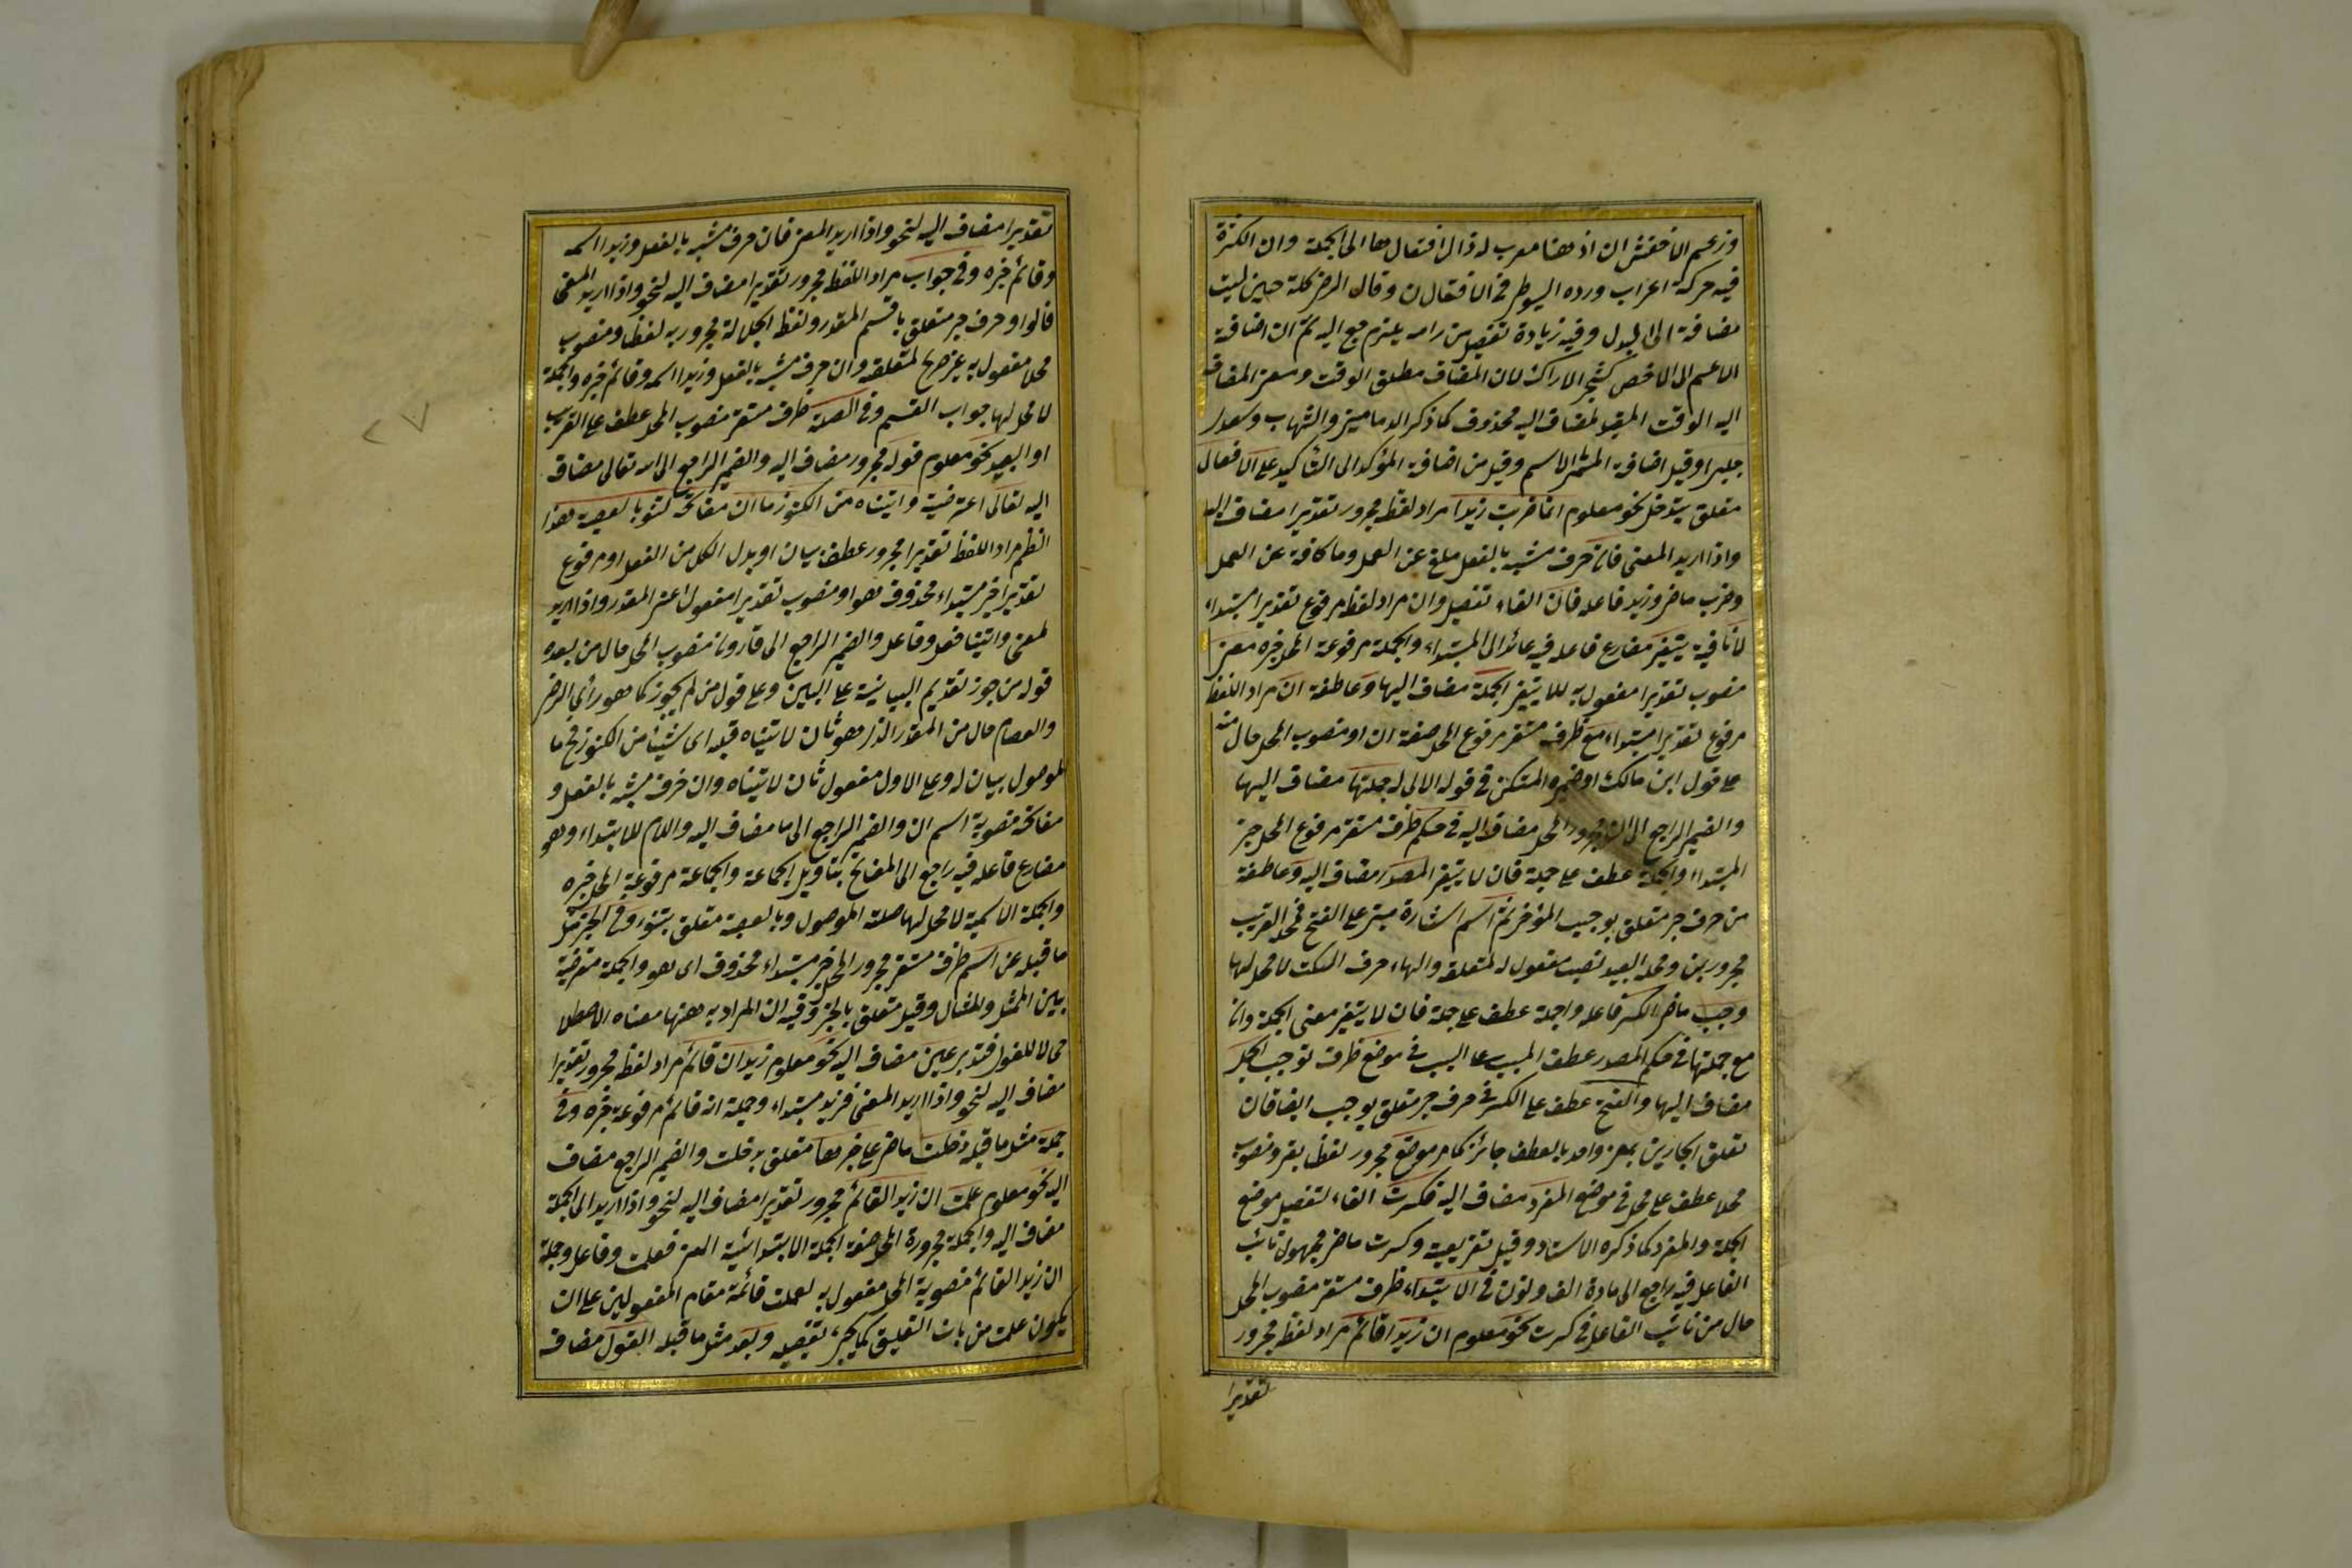 وزعم الاخفش ان اذ هنا معرب لزوال افتقارها الى الجملة وان الكسرة
فيه حركة اعراب ورده السيوطى فى الاتقان وقال الرضى كلمة حين ليست
مضافة الى البدل وفيه زيادة تفصيل من رامه يلزم رجع اليه ثم ان اضافة
الاعم الى الاخص كشجر الاراك لان المضاف مطلق الوقت ومعنى المضاف
اليه الوقت المقيد لمضاف اليه محذوف كما ذكر الدمامينى والشهاب وسعدى
جلبى وقيل اضافة المسمى الى الاسم وقيل من اضافة المؤكد الى التأكيد على الافعال
متعلق بتدخل نحو معلوم انما ضربت زيدا مراد لفظه مجرور تقديرا مضاف اليها
واذا اريد المعنى فان حرف مشبه بالفعل ملغى عن العمل وما كافة عن العمل
وضرب ماض وزيد فاعله فان الفاء تفصيل وان مراد لفظه مرفوع تقديرا مبتداء
لا نافية يتغير مضارع فاعله فيه عائد الى المبتداء والجملة مرفوعة المحل خبره معنى
منصوب تقديرا مفعول به للا يتغير الجملة مضاف اليها وعاطفة ان مراد اللفظ
مرفوع تقديرا مبتداء مع ظرف مستقر مرفوع المحل صفة ان او منصوب المحل حال منه
على قول ابن مالك او ضميره المتكن فى قوله الالى له جملتها مضاف اليها
والضمير الراجع الى ان مجرور المحل مضاف اليه فى حكم ظرف مستقر مرفوع المحل خبر
المبتداء والجملة عطف على جملة فان لا يتغير المصدر مضاف اليه وعاطفة
من حرف جر متعلق بوجب المؤخر ثم اسم اشارة مبنى على الفتح فمحله القريب
مجرور بمن ومحله البعيد نصب مفعول له لمتعلقه والهاء حرف السكت لا محل لها
وجب ماض الكسر فاعله واجملة عطف على جملة فان لا يتغير معنى الجملة وان
مع جملتها فى حكم المصدر عطف المسبب على السبب فى موضع ظرف لوجب الجمل
مضاف اليها والفتح عطف على الكسر فى حرف جر متعلق بوجب ايضا فان
تعلق الجارين بمعنى واحد بالعطف جائز كما مر موضع مجرور لفظا بفى ومنصوب
محلا عطف على محل فى موضع المفرد مضاف اليه فكسرت الفاء لتفصيل موضع
الجملة والمفرد كما ذكره الاستاد وقيل تفريعية وكسرت ماض مجهول نائب
الفاعل فيه راجع الى مادة الف ونون فى الابتداء ظرف مستقر منصوب المحل
حال من نائب الفاعل فى كسرت نحو معلوم ان زيدا قائم مراد لفظه مجرور
تقديرا
تقديرا مضاف اليه لنحو واذا اريد المعنى فان حرف مشبه بالفعل وزيدا اسمه
وقائم خبره وفى جواب مراد اللفظ مجرور تقديرا مضاف اليه لنحو واذا اريد المعنى
فالواو حرف جر متعلق باقسم المقدر ولفظ الجلالة مجرور به لفظا ومنصوب
محلا مفعول به غير صريح لمتعلقه وان حرف مشبه بالفعل وزيدا اسمه وقائم خبره والجملة
لا محل لها جواب القسم وفى الصلة ظرف مستقر منصوب المحل عطف على القريب
او البعيد نحو معلوم قوله مجرور مضاف اليه والضمير الراجع الى الله تعالى مضاف
اليه تعالى اعتراضية واتيناه من الكنوز ما ان مفاتحه لتنوء بالعصبة هذا
النظم مراد اللفظ تقديرا مجرور عطف بيان او بدل الكل من القول او مرفوع
تقديرا خبر مبتداء محذوف هو او منصوب تقديرا مفعول اعنى المقدر واذا اريد
لمعنى واتينا فعل وفاعل والضمير الراجع الى قارون منصوب المحل حال من بعده
قوله من جوز تقديم البيانية على المبين وعلى قول من لم يجوز كما هو رأى الرضى
والعصام حال من المقدر الذى هو ثان لاتيناه قبله اى شيئا من الكنوز فح ما
لموصول بيان له وعلى الاول مفعول ثان لاتيناه وان حرف مشبه بالفعل و
مفاتحه منصوبة اسم ان والضمير الراجع الى ما مضاف اليه واللام للابتداء وهو
مضارع فاعله فيه راجع الى المفاتح بتاويل الجماعة والجماعة مرفوعة المحل خبره
والجملة الاسمية لا محل لها صلة الموصول وبالعصبة متعلق بتنوء وفى الخبر مثل
ما قبله عن اسم ظرف مستقر مجرور المحل خبر مبتداء محذوف اى هو والجملة معترضة
بين الممثل والمثال وقيل متعلق بالخبر وفيه ان المراد به ههنا معناه الاصطلا
حى لا اللغوى فتدبر عين مضاف اليه نحو معلوم زيد ان قائم مراد لفظه مجرور تقديرا
مضاف اليه لنحو واذا اريد المعنى فزيد مبتداء وجملة انه قائم مرفوعة خبره وفى
جملة مثل ما قبله دخلت ماض على خبرها متعلق بدخلت والضمير الراجع مضاف
اليه نحو معلوم علمت ان زيد القائم مجرور تقديرا مضاف اليه لنحو واذا اريد الى الجملة
مضاف اليه والجملة مجرورة المحل صفة الجملة الابتدائية المعنى فعلمت وفاعل وجملة
ان زيد القائم منصوبة المحل مفعول به لعلمت قائمة مقام المفعولين على ان
يكون علمت من باب التعليق كما يجئ تفصيله وبعد مثل ما قبله القول مضاف